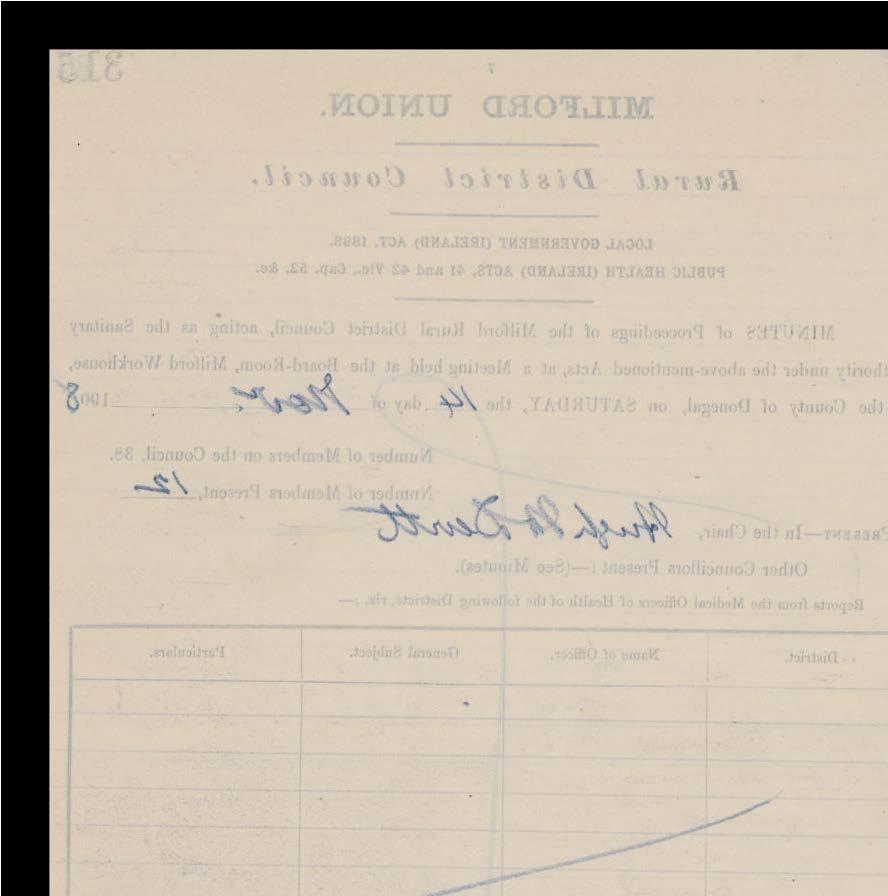 315
7
MILFORD UNION.
Rural District Council.
LOCAL GOVERNMENT (IRELAND) ACT, 1898.
PUBLIC HEALTH (IRELAND) ACTS, 41 and 42 Vic., Cap. 52, &c.
MINUTES of Proceedings of the Milford Rural District Council, acting as the Sanitary
thority under the above-mentioned Acts, at a Meeting held at the Board-Room, Milford Workhouse,
the County of Donegal, on SATURDAY, the 14 day of Novr. 1908
Number of Members on the Council, 38.
Number of Members Present, 12
PRESENT—In the Chair, Hugh McDevitt
Other Councillors Present:—(See Minutes).
Reports from the Medical Officers of Health of the following Districts, viz.:—
District. Name of Officer. General Subject. Particulars.